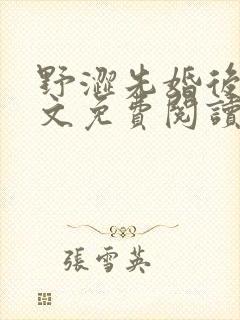 野澀先婚後
文免費閱讀
張雪英